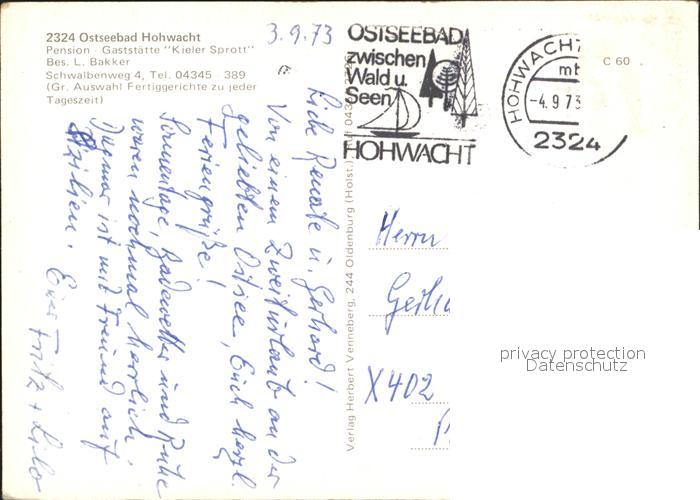 2324 Ostseebad Hohwacht
Pension · Gaststätte "Kieler Sprott"
Bes. L. Bakker
Schwalbenweg 4, Tel. 04345 · 389
(Gr. Auswahl Fertiggerichte zu jeder
Tageszeit)
3.9.73
Liebe Renate u. Gerhard!
Von einem Zweiturlaub an der
geliebten Ostsee, Euch herzl.
Feriengrüße!
Sonnentage, Badewetter und Ruhe
waren nochmal herrlich.
Dagmar ist mit Freund auf
Sizilien.
Eure Fritz + Lilo
OSTSEEBAD
zwischen
Wald u.
Seen
HOHWACHT
HOHWACHT
-4.9.73
2324
C 60
Verlag Herbert Venneberg, 244 Oldenburg (Holst.)
Herrn
X402
privacy protection
Datenschutz